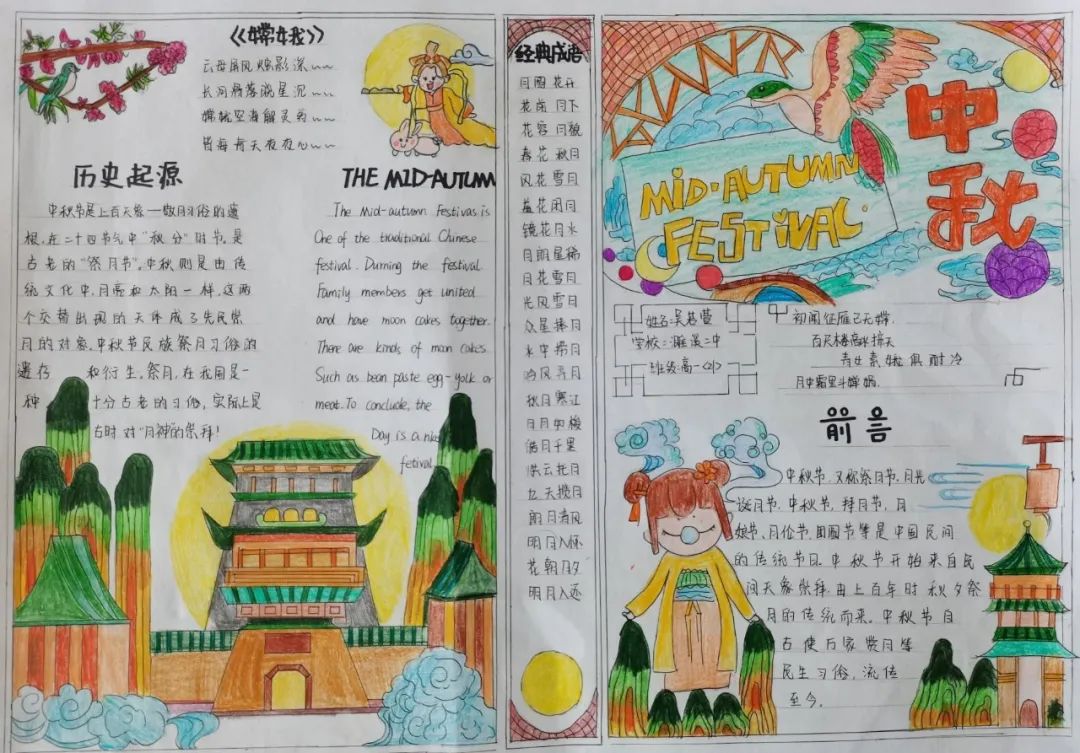 《嫦娥》
云母屏风烛影深~~
长河渐落晓星沉~~
嫦娥
碧海青天夜夜心~~
历史起源
中秋节是上
根，在二十四节气中"秋分"时节，是
古老的"祭月节"。中秋则是由传
统文化中，月亮和太阳一样，这两
个交替出现的天体成了先民崇
月的对象。中秋节民族祭月习俗的
遗存 和衍生。祭月，在我国是一
种 十分古老的习俗，实际上是
古时对"月神的崇拜！
THE MID-AUTUM
The Mid-autumn Festivas is
One of the traditional Chinese
festival. Durning the festival
Family members get united
and have moon cakes together.
There are kinds of moon cakes
Such as bean paste egg-yolk or
meat. To conclude, the
Day is a nice
fetival
经典成语
月圆花开
花前月下
花容月貌
春花秋月
风花雪月
羞花闭月
镜花月水
月朗星稀
月花雪月
光风雪月
众星捧月
水中捞月
吟风弄月
秋月寒江
日月如梭
皓月千里
烘云托月
九天揽月
朗月清风
明月入怀
花朝月夕
明月入还
MID·AUTUMN
FESTIVAL·
中秋
学校:
班级:高一〈21〉
初闻征雁已无蝉.
百尺楼高水接天
青女素娥俱耐冷
月中霜里斗婵娟.
前言
中秋节，又称祭月节、月光
诞、月节、中秋节、拜月节、月
娘节、月伦节、团圆节等是中国民间
的传统节日。中秋节开始来自民
间天象崇拜，由上百年时秋夕祭
月的传统而来。中秋节自
古便万家赏月等
民生习俗，流传
至今。